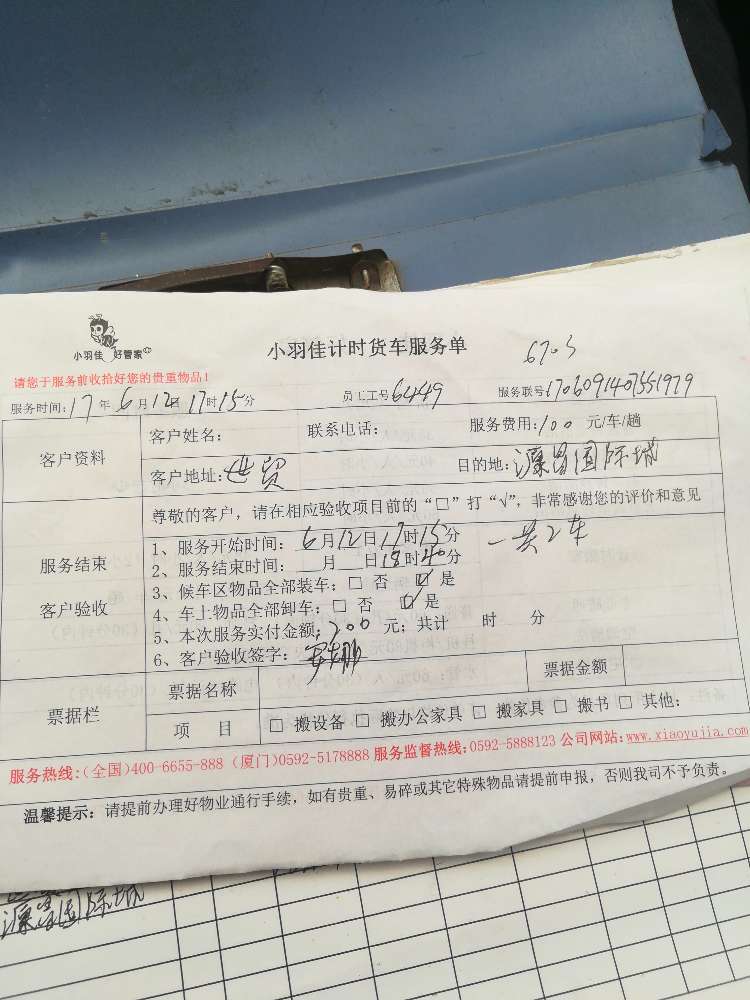 小羽佳 好管家
小羽佳计时货车服务单
670.5
请您于服务前收拾好您的贵重物品！
服务时间：17年6月12日17时15分 员工工号6449 服务联号
客户资料
客户姓名： 联系电话： 服务费用：100 元/车/趟
客户地址：世贸 目的地：源昌国际城
尊敬的客户，请在相应验收项目前的“□”打“√”，非常感谢您的评价和意见
服务结束
客户验收
1、服务开始时间：6月12日17时15分 一共2车
2、服务结束时间：__月__日18时40分
3、候车区物品全部装车：□ 否 ☑ 是
4、车上物品全部卸车：□ 否 ☑ 是
5、本次服务实付金额：200 元；共计 时 分
6、客户验收签字：
票据栏
票据名称 票据金额
项 目 □ 搬设备 □ 搬办公家具 □ 搬家具 □ 搬书 □ 其他：
服务热线：(全国)400-6655-888 (厦门)0592-5178888 服务监督热线：0592-5888123 公司网站：www.xiaoyujia.com
温馨提示：请提前办理好物业通行手续，如有贵重、易碎或其它特殊物品请提前申报，否则我司不予负责。
源昌国际城